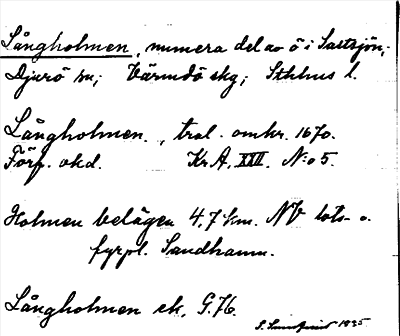 Långholmen, numera del av ö i Saltsjön;
Djurö sn; Värmdö skg; Sthlms l.
Långholmen, tral. omkr. 1670.
Förp. okd. Kr.A. XXII. N:o 5.
Holmen belägen 4,7 km. NV lots- o.
fyrpl. Sandhamn.
Långholmen ek. G.76.
1935